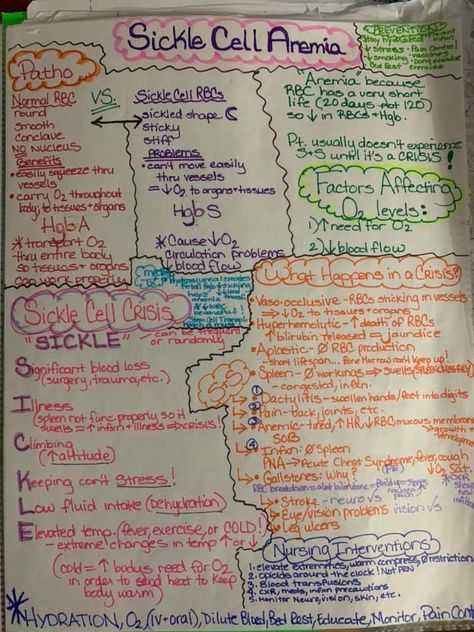 Sickle Cell Anemia
PREVENTION
Stay hydrated
↓ stress
↓ smoking
Bed Rest
• Pain Control
• vaccines
exercise
Patho
Normal RBC
round
smooth
conclave
NO NUCLEUS
Benefits
• easily squeeze thru
vessels
• carry O2 throughout
body; to tissues + organs
HgbA
* transport O2
thru entire body
so tissues + organs
can work properly
VS.
Sickle Cell RBCs
sickled shape
sticky
stiff
Problems
• can't move easily
thru vessels
= ↓O2 to organs + tissues
Hgb S
* Cause ↓O2
circulation problems
↓ blood flow
"Anemia" because
RBC has a very short
life (20 days not 120)
so ↓ in RBCs + Hgb.
Pt. usually doesn't experience
S+S until it's a CRISIS!
Factors Affecting
O2 levels:
1) ↑ need for O2
2) ↓ blood flow
meds
Sickle Cell Crisis
"SICKLE"
or randomly
Significant blood loss
(surgery, trauma, etc.)
Illness
(spleen not func. properly so it
swells = ↑ infxn + illness ⇒ crisis!)
Climbing
(↑ altitude)
Keeping con't stress!
Low fluid intake (dehydration)
Elevated temp. (fever, exercise, or COLD!)
- extreme changes in temp ↑ or ↓
(cold = ↑ bodys need for O2
in order to send heat to keep
body warm)
What Happens in a Crisis?
• Vaso-occlusive - RBCs sticking in vessels
⇒ ↓O2 to tissues + organs
• Hyperhemolytic - ↑ death of RBCs
↑ bilirubin released = jaundice
• Aplastic - Ø RBC production
- short lifespan... Bone Marrow can't keep up!
• Spleen - Ø working ⇒ swells (SPLENOMEGALY)
- congested, infxn.
S+S
① • Dactylitis - swollen hands/feet into digits
② • Pain - back, joints, etc.
③ • Anemic - tired, ↑HR, ↓RBC, mucous membrane
SOB
growth +
④ • Infxn: Ø Spleen
PNA → Acute Chest Syndrome, fever, cough
↓O2 Sat
• Gallstones: Why?
→ Stroke - neuro vs
→ Eye/vision problems vision vs
→ Leg ulcers
Nursing Interventions
1. elevate extremities, warm compress, Ø restriction
2. opioids around the clock! Not PRN
3. Blood transfusions
4. CXR, meds, infxn precautions
5. Monitor Neuro, vision, skin, etc.
* HYDRATION, O2, (IV + oral), Dilute Blood, Bed Rest, Educate, Monitor, Pain Cont